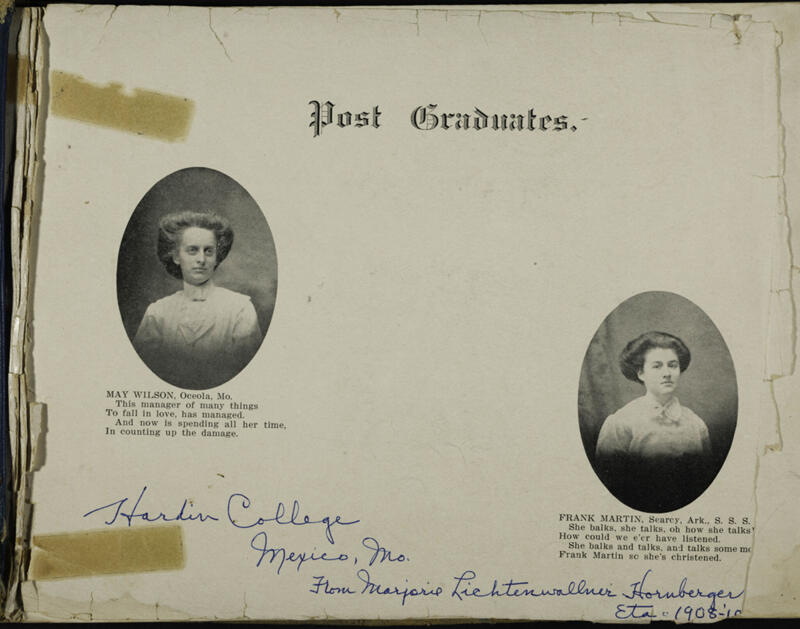 Post Graduates.
MAY WILSON, Oceola, Mo.
This manager of many things
To fall in love, has managed.
And now is spending all her time,
In counting up the damage.
FRANK MARTIN, Searcy, Ark., S. S. S.
She balks, she talks, oh how she talks
How could we e'er have listened.
She balks and talks, and talks some mo
Frank Martin so she's christened.
Hardin College
Mexico, Mo.
From Marjorie Lichtenwallner Hornberger
Eta - 1908-10